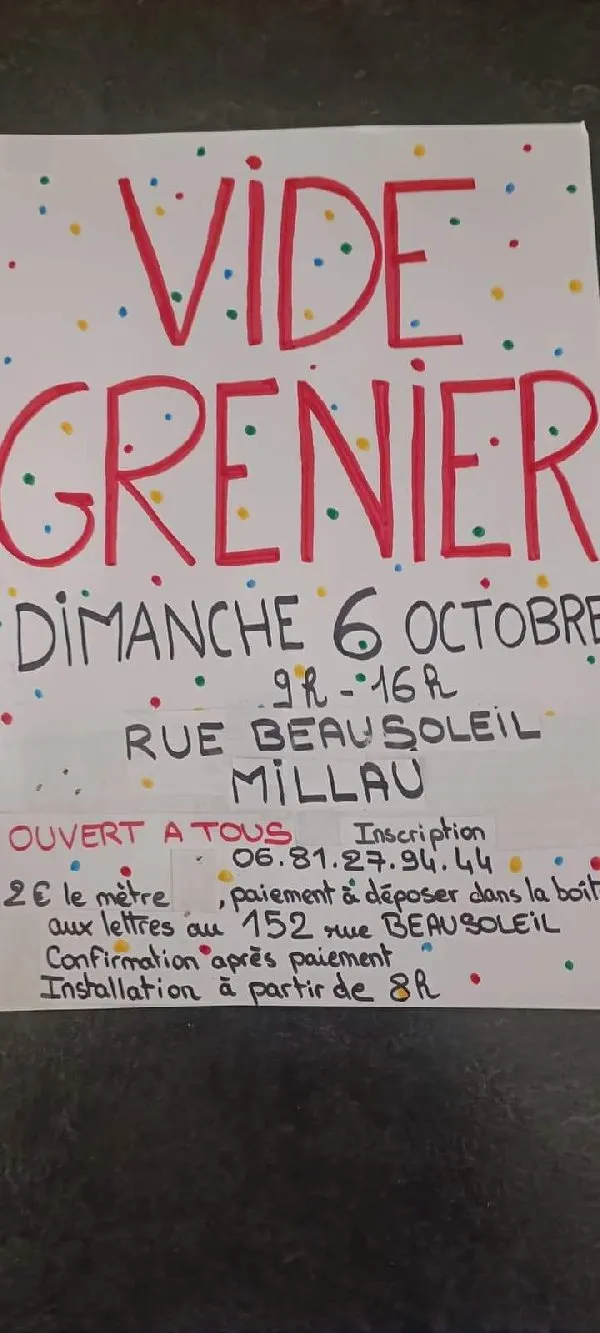 ViDE
GRENiER
DiMANCHE 6 OCTOBRE
9h - 16h
RUE BEAUSOLEiL
MiLLAU
OUVERT A TOUS Inscription
06.81.27.94.44
2€ le mètre , paiement à déposer dans la boit
aux lettres au 152 rue BEAUSOLEiL
Confirmation après paiement
Installation à partir de 8h